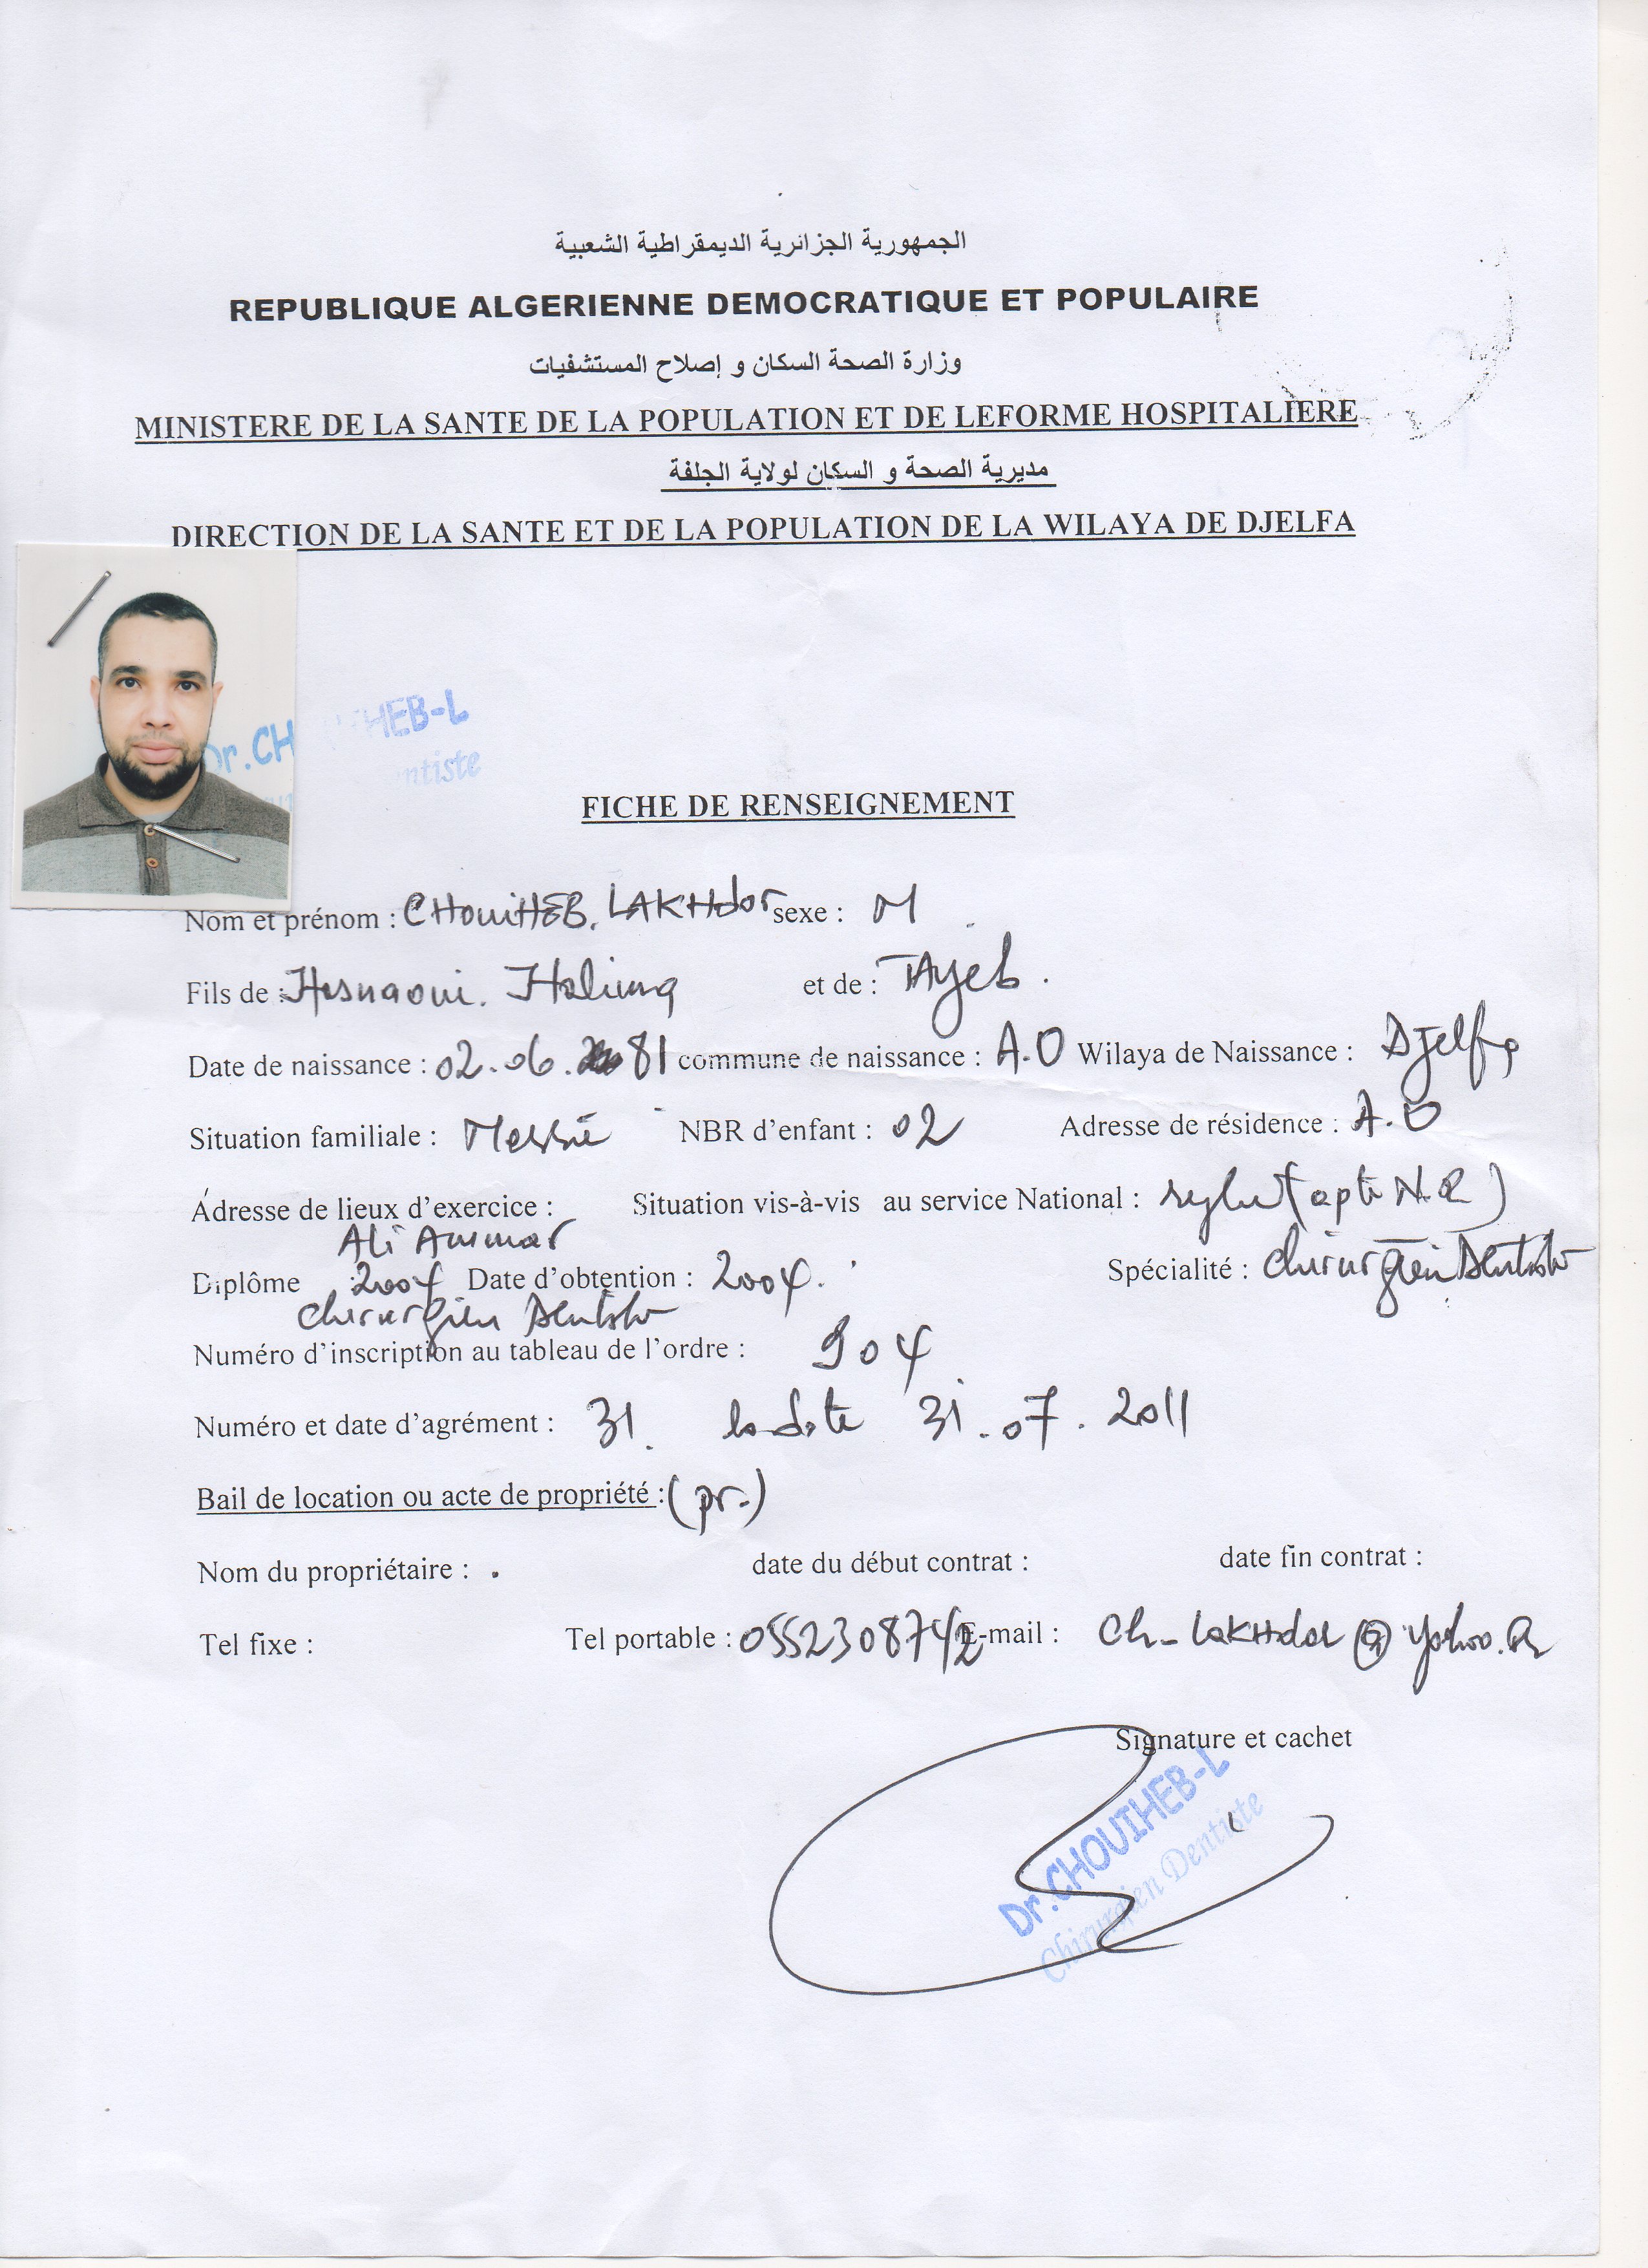 الجمهورية الجزائرية الديمقراطية الشعبية
REPUBLIQUE ALGERIENNE DEMOCRATIQUE ET POPULAIRE
وزارة الصحة السكان و إصلاح المستشفيات
MINISTERE DE LA SANTE DE LA POPULATION ET DE LEFORME HOSPITALIERE
مديرية الصحة و السكان لولاية الجلفة
DIRECTION DE LA SANTE ET DE LA POPULATION DE LA WILAYA DE DJELFA
Dr.CH HEB-L
ntiste
FICHE DE RENSEIGNEMENT
Nom et prénom : CHouiHEB. LAKHdar sexe : M
Fils de : Hasnaoui. Halima et de : TAyeb.
Date de naissance : 02.06.81 commune de naissance : A.O Wilaya de Naissance : Djelfa
Situation familiale : NBR d'enfant : 02 Adresse de résidence : A.O
Adresse de lieux d'exercice : Situation vis-à-vis au service National : (apte N.R)
Ali Ammar
Diplôme : 2004 Date d'obtention : 2004. Spécialité : chirurgien Dentiste
chirurgien Dentiste
Numéro d'inscription au tableau de l'ordre : 904
Numéro et date d'agrément : 31. la date 31.07.2011
Bail de location ou acte de propriété : (pr.)
Nom du propriétaire : . date du début contrat : date fin contrat :
Tel fixe : Tel portable : 0552308742 E-mail : Ch_LaKHdar@yahoo.fr
Signature et cachet
Dr.CHOUIHEB-L
Chirurgien Dentiste